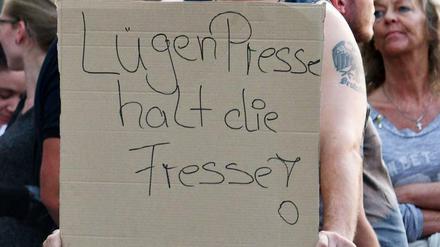 LügenPresse
halt die
Fresse!